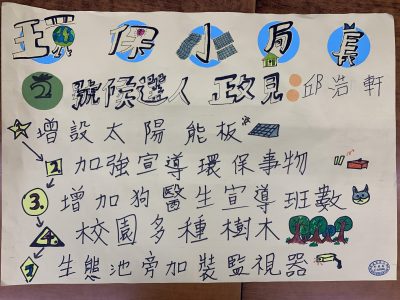 環保小局長
2號候選人 政見：邱浩軒
增設太陽能板
2 加強宣導環保事物
3. 增加狗醫生宣導班數
4. 校園多種樹木
生態池旁加裝監視器